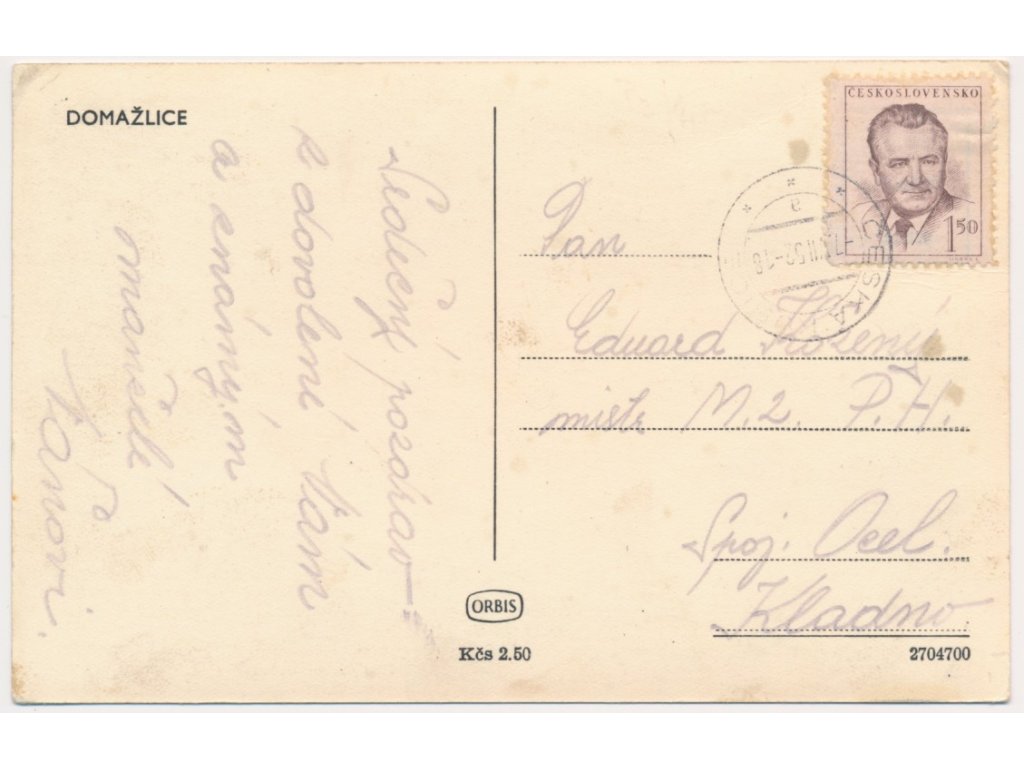 DOMAŽLICE
Srdečný pozdrav
z dovolení Vám
a známým
manželé
ČESKOSLOVENSKO
1 50
ČESKÁ
Pan
Eduard Kožený
mistr M.2. P.H.
Spoj. Ocel.
Kladno.
ORBIS
Kčs 2.50
2704700